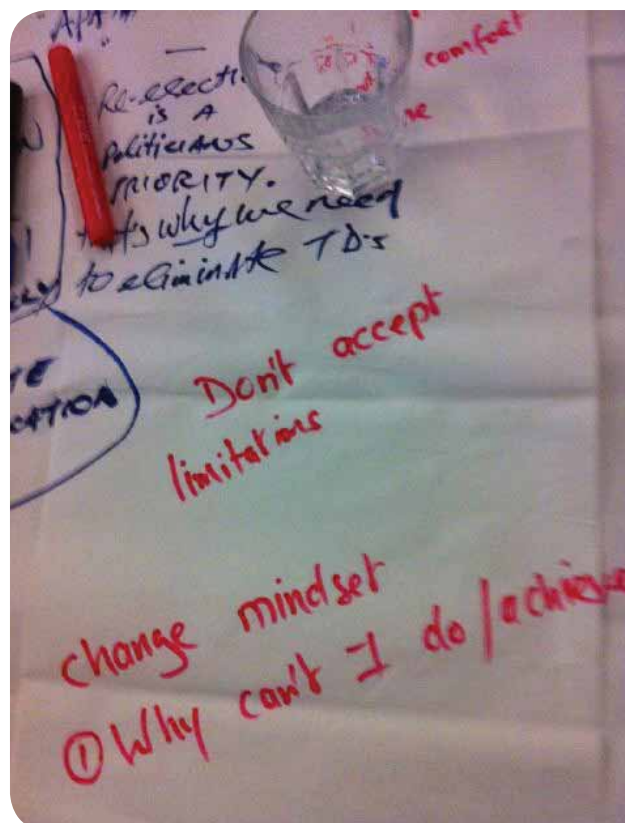 comfort
Re-electi
is A
politicians
PRIORITY.
that's why we need
to eliminate TD's
Don't accept
limitations
change mindset
① Why can't I do / achieve